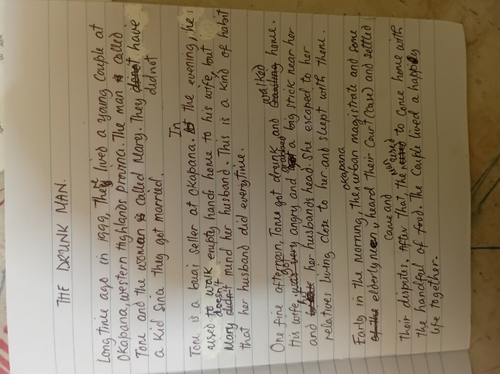 THE DRUNK MAN.
Long time ago in 1999, They lived a young couple at
Okapana, western Highlands Province. The man is called
Tone and the woman is called Mary. They didn't have
a kid since They got married.
Tone is a buai seller at Okapana. In the evening, he
used to walk empty hands home to his wife, but
Mary doesn't mind her husband. This is a kind of habit
that her husband did everytime.
One fine afternoon, Tone got drunk and walked home.
His wife, got angry and grabbed a big stick near her
and hit her husbands head. She escaped to her
relatives living close to her and slept with them.
Early in the morning, the okapana urban magistrate and some
elderly men came and heard their court (case) and settled
Their disputes. After that, the man used to come home with
the handful of food. The couple lived a happy
life together.